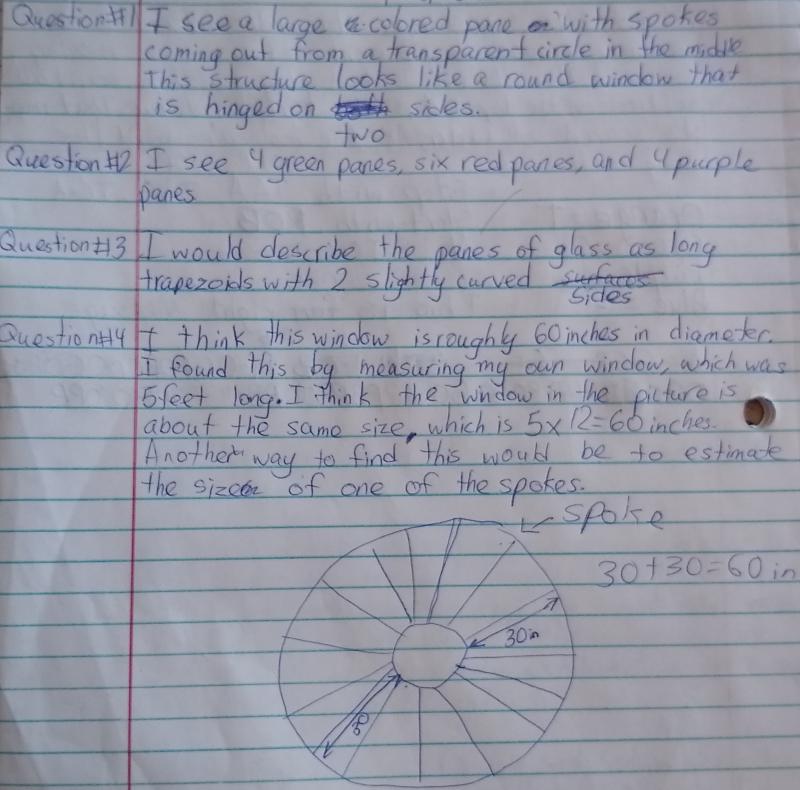 Question#1 I see a large colored pane with spokes
coming out from a transparent circle in the middle
This structure looks like a round window that
is hinged on sides.
two
Question#2 I see 4 green panes, six red panes, and 4 purple
panes
Question#3 I would describe the panes of glass as long
trapezoids with 2 slightly curved surfaces
sides
Question#4 I think this window is roughly 60 inches in diameter.
I found this by measuring my own window, which was
5 feet long. I think the window in the picture is
about the same size, which is 5x12=60 inches.
Another way to find this would be to estimate
the size of one of the spokes.
spoke
30+30=60 in
30in
30